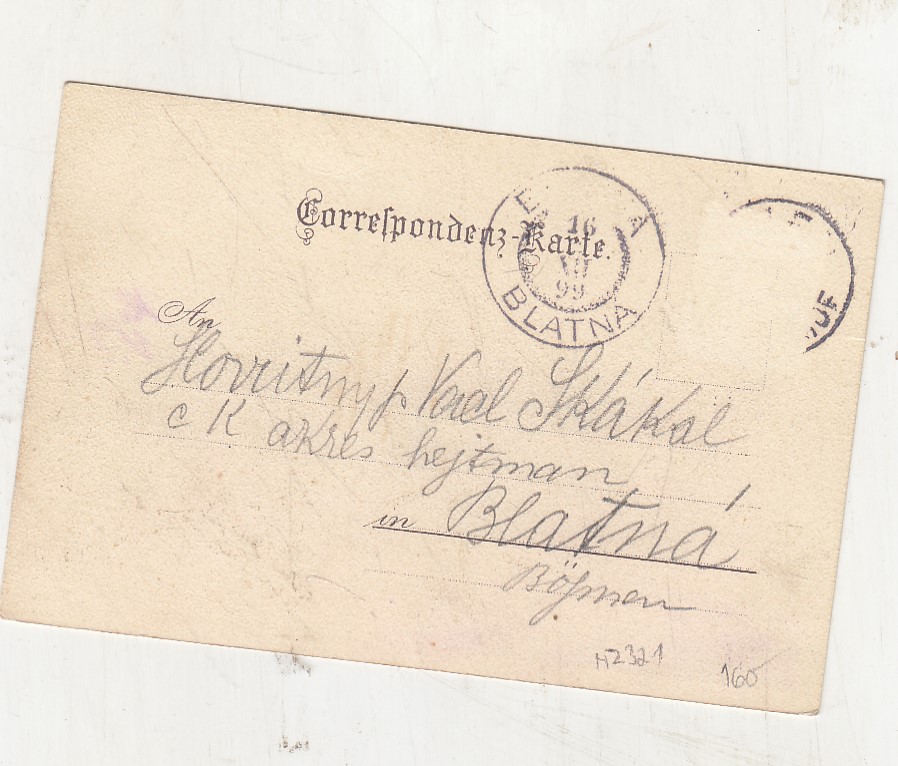 Correspondenz-Karte.
16
99
BLATNA
An
Vacl Skákal
c K okres hejtman
in Blatná
Böhmen
N2321
160